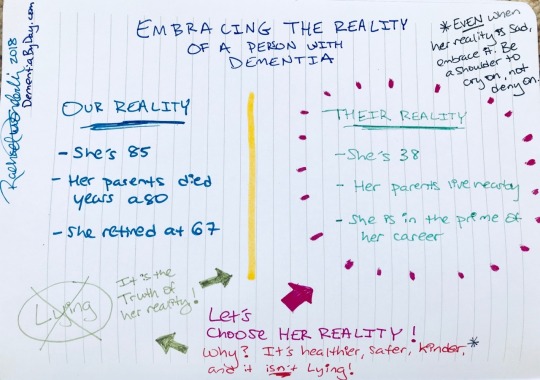 EMBRACING THE REALITY
OF A PERSON WITH
DEMENTIA
* EVEN when
her reality is sad,
embrace it. Be
a shoulder to
cry on, not
deny on.
2018
DementiaByDay.com
OUR REALITY
- She's 85
- Her parents died
years ago
- She retired at 67
THEIR REALITY
- She's 38
- Her parents live nearby
- She is in the prime of
her career
Lying
It's the
Truth of
her reality!
Let's
CHOOSE HER REALITY!
Why? It's healthier, safer, kinder,*
and it isn't Lying!